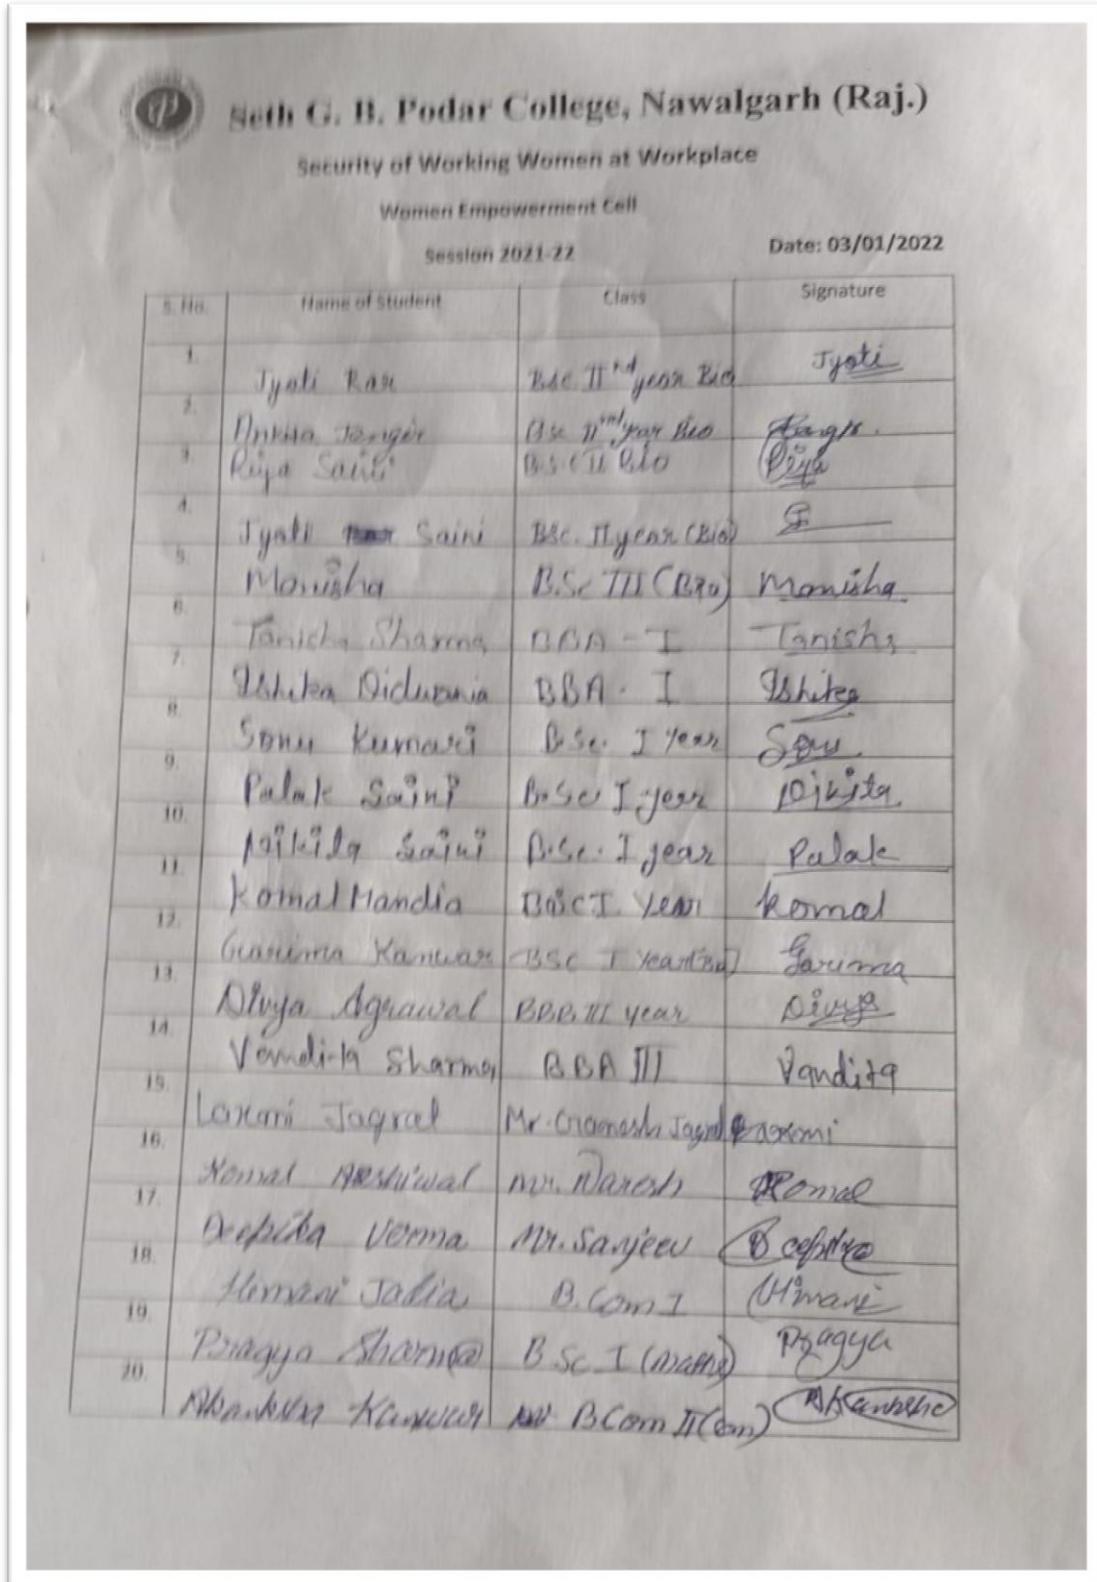 Seth G. B. Podar College, Nawalgarh (Raj.)
Security of Working Women at Workplace
Women Empowerment Cell
Session 2021-22 Date: 03/01/2022
S. No. Name of Student Class Signature
1. Jyoti Rar BSc IInd year Bio Jyoti
2. Ankita Jangir BSc IInd year Bio
3. Riya Saini B.Sc II Bio Riya
4. Jyoti Saini BSc. II year (Bio)
5. Monisha B.Sc III (Bio) Monisha
6. Tanisha Sharma BBA - I Tanisha
7. Ishika Didwania BBA - I Ishika
8. Sonu Kumari B.Sc. I Year Sonu
9. Palak Saini B.Sc I year Nikita
10. Nikita Saini B.Sc. I year Palak
11. Komal Mandia BSc I Year Komal
12. Garima Kanwar BSC I Year (Bio) Garima
13. Divya Agrawal BBA III year Divya
14. Vandita Sharma BBA III Vandita
15. Laxmi Jagral Mr. Jagral Laxmi
16. Komal Mr. Naresh Komal
17. Deepika Verma Mr. Sanjeev Deepika
18. Himani B.Com I Himani
19. Pragya Sharma B Sc I (maths) Pragya
20. Akanksha Kanwar B Com II (Com) Akanksha